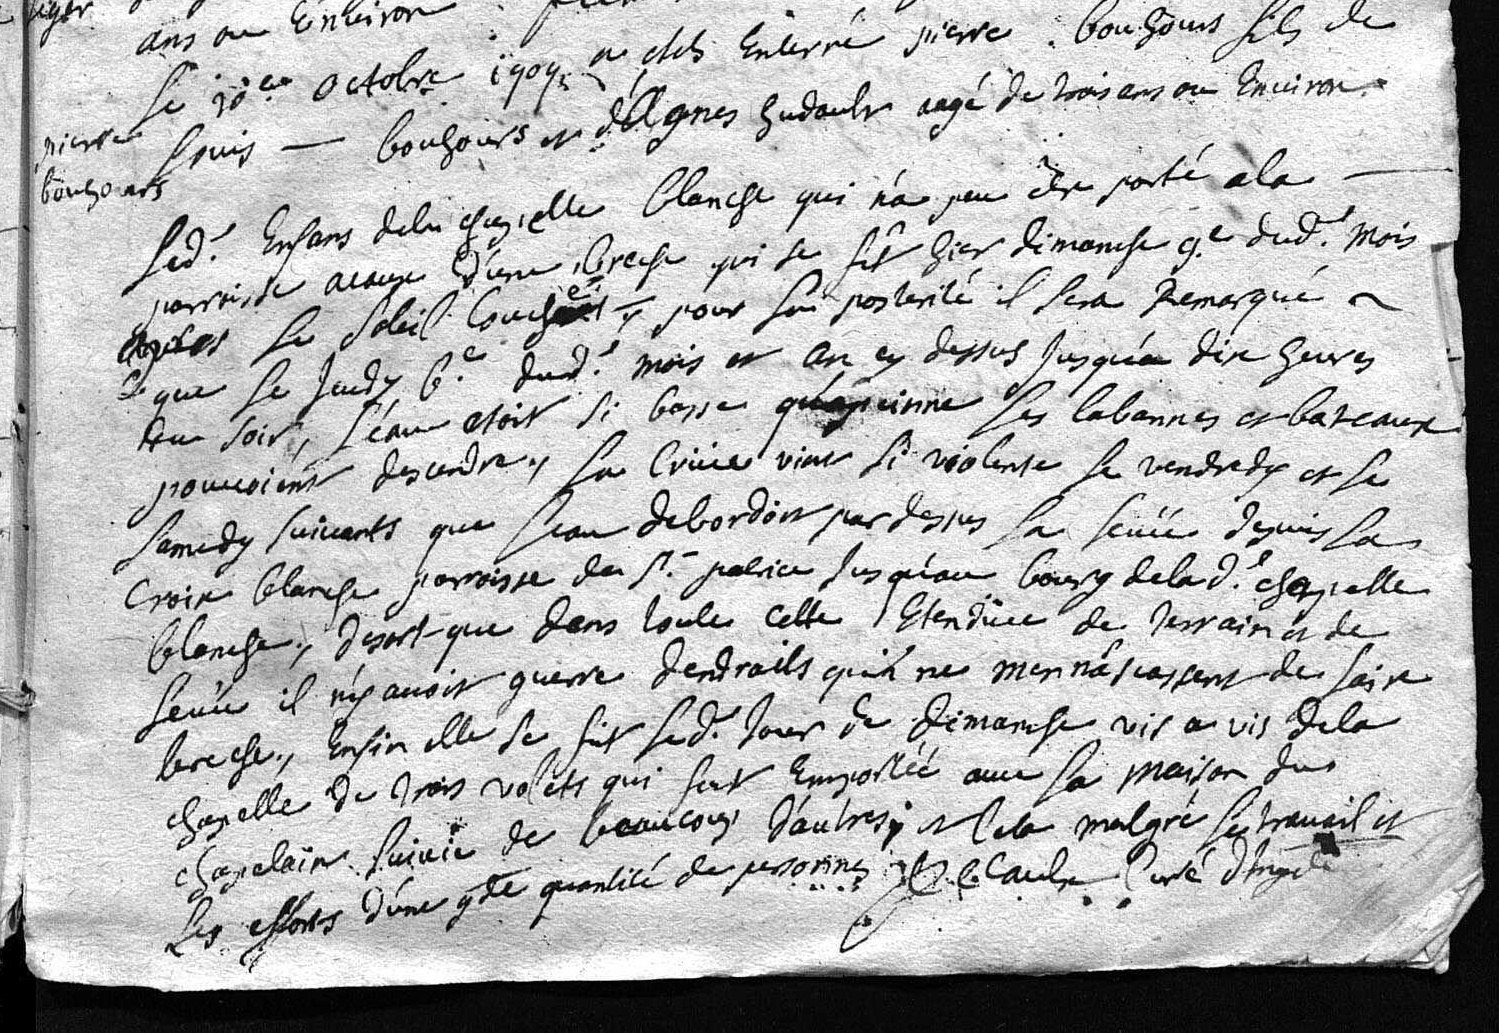 ans ou Environ
Le 10e octobre 1707 a esté Enterré pierre bouhours fils de
pierre
bouhours
Louis — bouhours et d'Agnes hudault aagé de trois ans ou Environ
Led.t Enfans dela chapelle blanche qui n'a peu étre porté a la —
parroisse acause d'une breche qui se fit hier dimanche 9e dud.t mois
apres le soleil Couché, pour la posterité il sera Remarqué
que le Jeudy 6e dud.t mois et an cy dessus Jusqu'a dix heures
du soir, l'eau etoit si basse qu'apeinne les cabannes et bateaux
pouvoient descendre, la Criue vint si violente le vendredy et le
samedy suivants que l'eau debordoit par dessus la leuée depuis la
Croix blanche parroisse de St patrice Jusqu'au bourg de lad.e chapelle
blanche, desort que dans toute cette Etendüe de terrain et de
leuée il n'y avoit guerre d'endroits qui ne mennassassent de faire
breche, Enfin elle se fit led.t Jour de dimanche vis a vis dela
chapelle de trois volets qui fut Emportéé avec la maison du
chapelain suivie de beaucoup d'autres, et Cela malgré le travail et
Les efforts d'une gde quantité de personnes Curé d'Ingrande